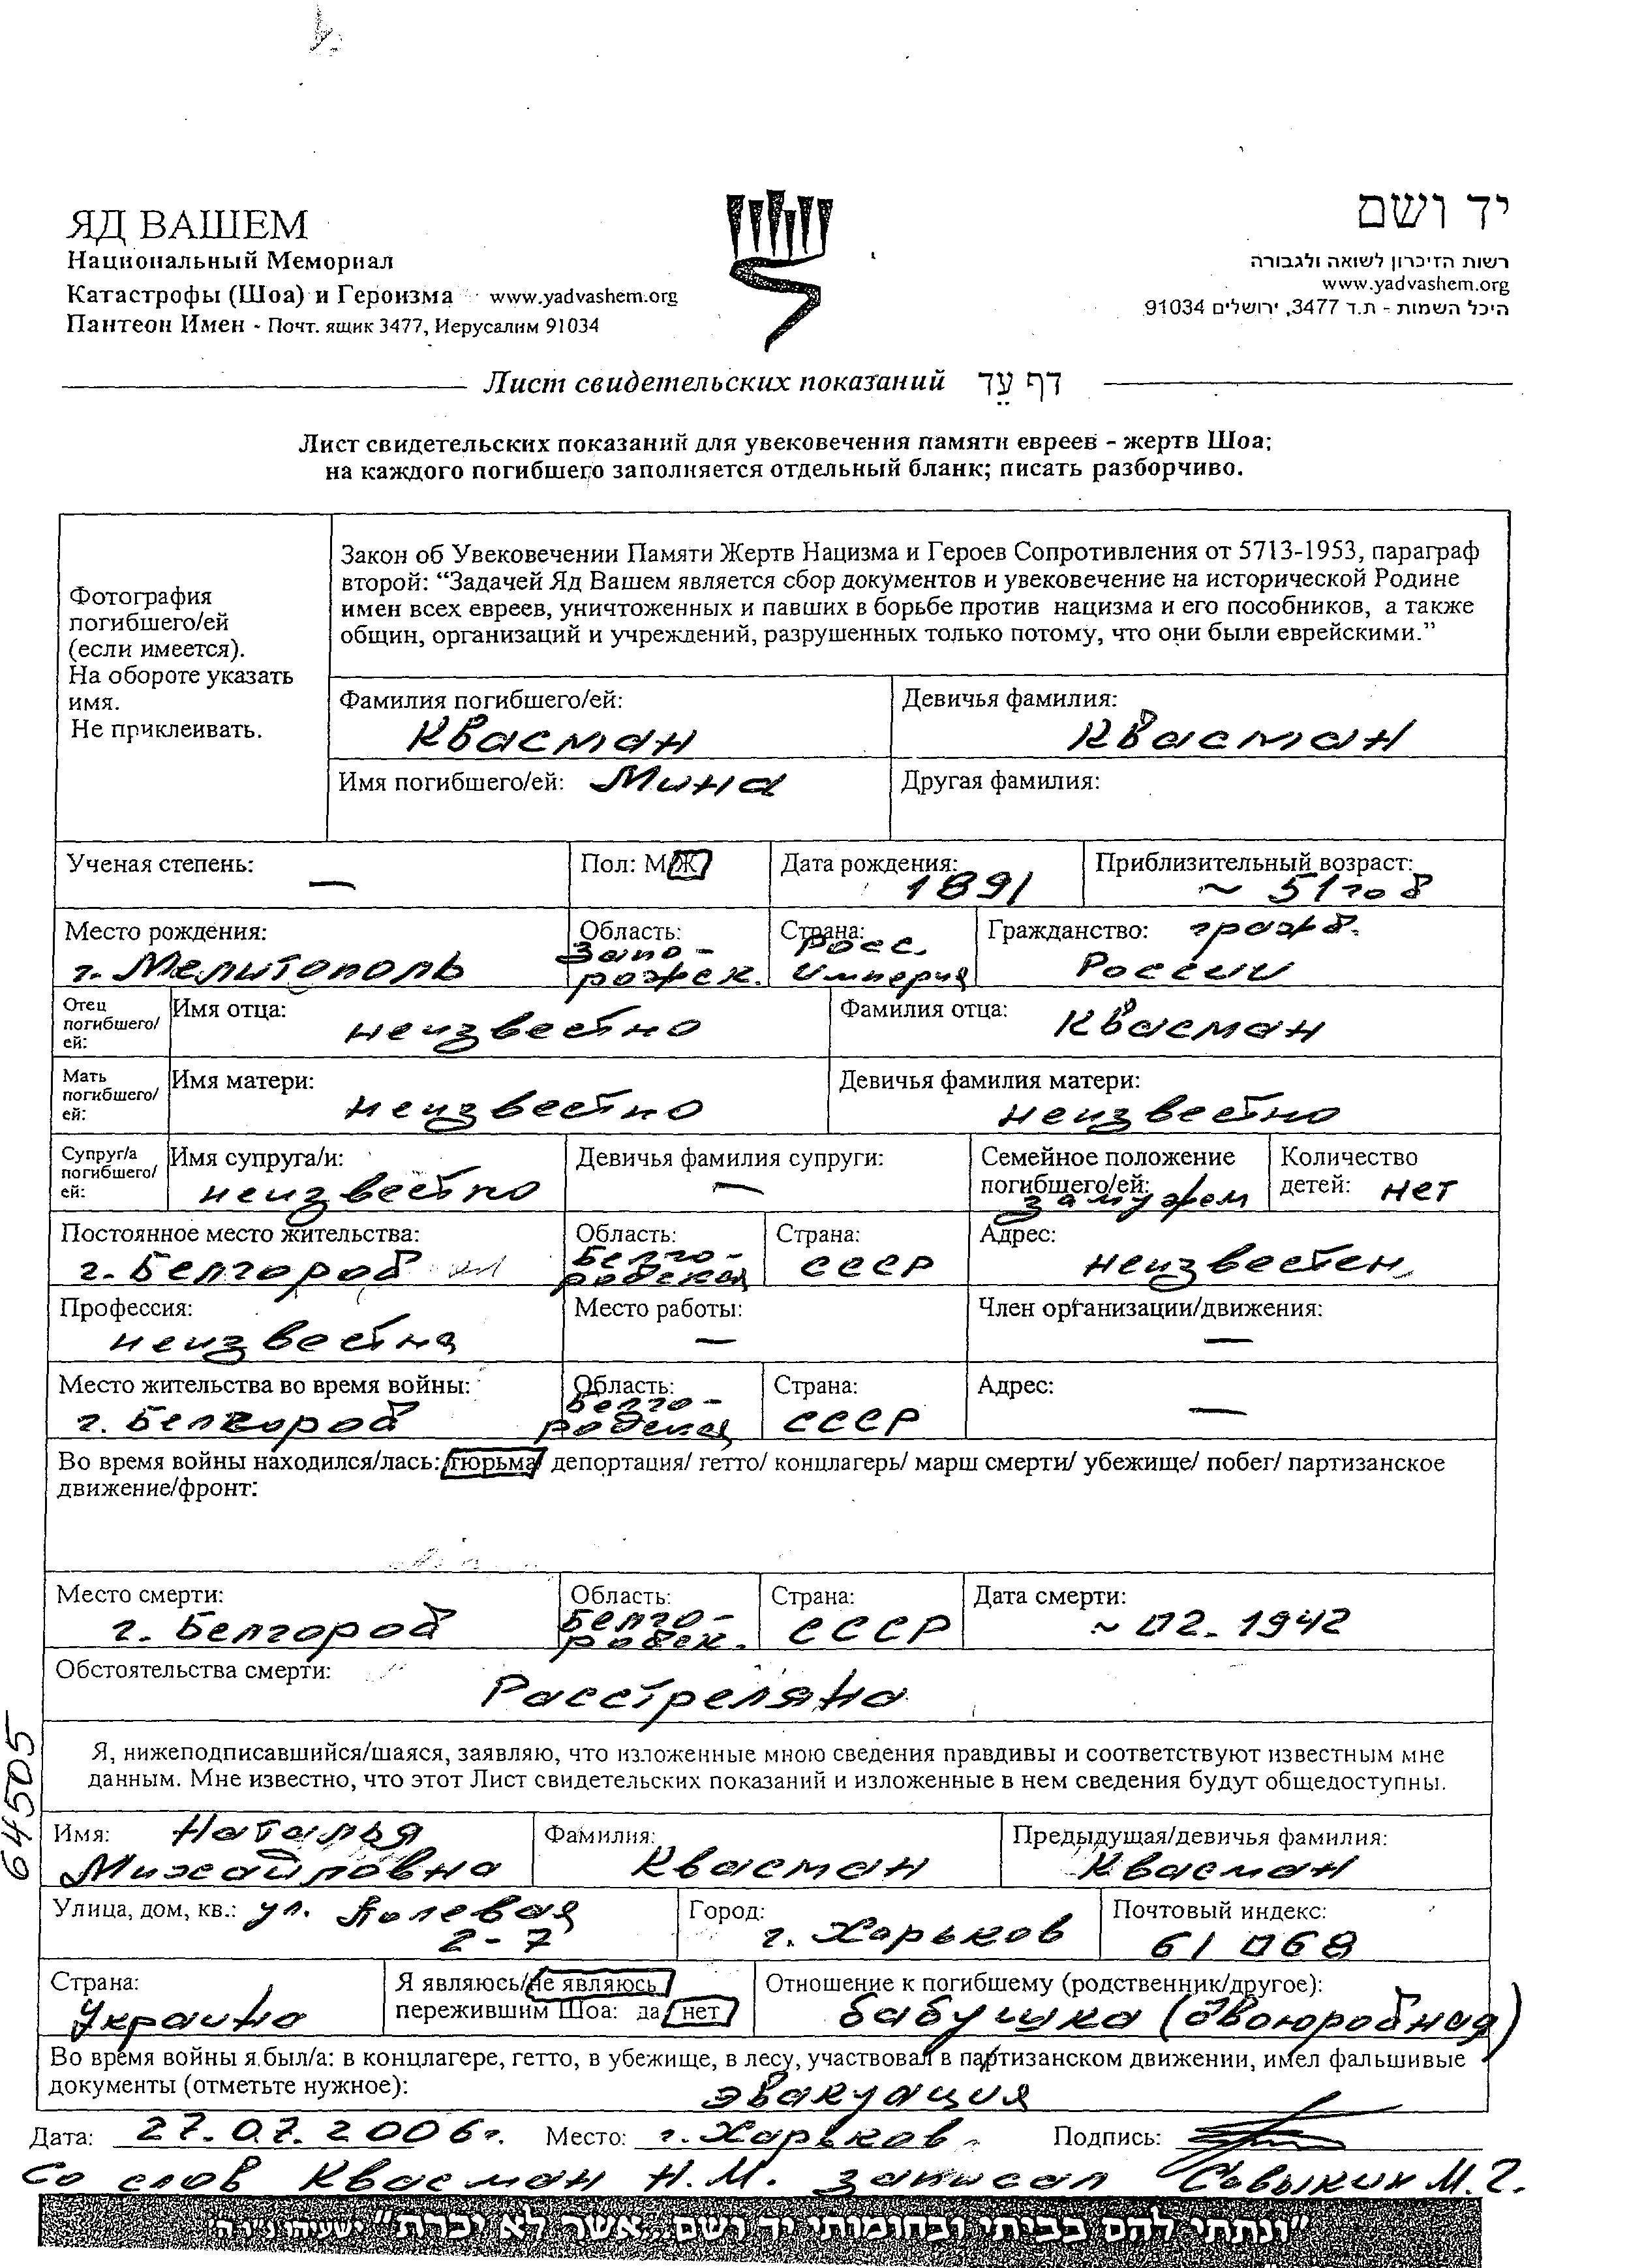 ЯД ВАШЕМ
Национальный Мемориал
Катастрофы (Шоа) и Героизма www.yadvashem.org
Пантеон Имен - Почт. ящик 3477, Иерусалим 91034
יד ושם
רשות הזיכרון לשואה ולגבורה
www.yadvashem.org
היכל השמות - ת.ד 3477, ירושלים 91034
Лист свидетельских показаний דף עד
Лист свидетельских показаний для увековечения памяти евреев - жертв Шоа;
на каждого погибшего заполняется отдельный бланк; писать разборчиво.
Фотография
погибшего/ей
(если имеется).
На обороте указать
имя.
Не приклеивать.
Закон об Увековечении Памяти Жертв Нацизма и Героев Сопротивления от 5713-1953, параграф
второй: “Задачей Яд Вашем является сбор документов и увековечение на исторической Родине
имен всех евреев, уничтоженных и павших в борьбе против нацизма и его пособников, а также
общин, организаций и учреждений, разрушенных только потому, что они были еврейскими.”
Фамилия погибшего/ей: Квасман
Девичья фамилия: Квасман
Имя погибшего/ей: Мина
Другая фамилия:
Ученая степень: —
Пол: М/Ж
Дата рождения: 1891
Приблизительный возраст: ~ 51 год
Место рождения: г. Мелитополь
Область: Запо-
рожск.
Страна: Росс.
Империя
Гражданство: гражд.
России
Отец
погибшего/
ей:
Имя отца: неизвестно
Фамилия отца: Квасман
Мать
погибшего/
ей:
Имя матери: неизвестно
Девичья фамилия матери: неизвестно
Супруг/а
погибшего/
ей:
Имя супруга/и: неизвестно
Девичья фамилия супруги: —
Семейное положение
погибшего/ей: замужем
Количество
детей: нет
Постоянное место жительства: г. Белгород
Область: Белго-
родская
Страна: СССР
Адрес: неизвестен
Профессия: неизвестна
Место работы: —
Член организации/движения: —
Место жительства во время войны: г. Белгород
Область: Белго-
родская
Страна: СССР
Адрес: —
Во время войны находился/лась: тюрьма/ депортация/ гетто/ концлагерь/ марш смерти/ убежище/ побег/ партизанское
движение/фронт:
Место смерти: г. Белгород
Область: Белго-
родск.
Страна: СССР
Дата смерти: ~ 02. 1942
Обстоятельства смерти: Расстреляна
Я, нижеподписавшийся/шаяся, заявляю, что изложенные мною сведения правдивы и соответствуют известным мне
данным. Мне известно, что этот Лист свидетельских показаний и изложенные в нем сведения будут общедоступны.
64505
Имя: Наталья
Михайловна
Фамилия: Квасман
Предыдущая/девичья фамилия: Квасман
Улица, дом, кв.: ул. Полевая
2-7
Город: г. Харьков
Почтовый индекс: 61068
Страна: Украина
Я являюсь/не являюсь
пережившим Шоа: да/нет
Отношение к погибшему (родственник/другое):
бабушка (двоюродная)
Во время войны я был/а: в концлагере, гетто, в убежище, в лесу, участвовал в партизанском движении, имел фальшивые
документы (отметьте нужное): эвакуация
Дата: 27.07.2006г. Место: г. Харьков. Подпись:
Со слов Квасман Н.М. записал М.Г.
"ונתתי להם בביתי ובחומותי יד ושם...אשר לא יכרת" ישעיהו נ"ו ה'